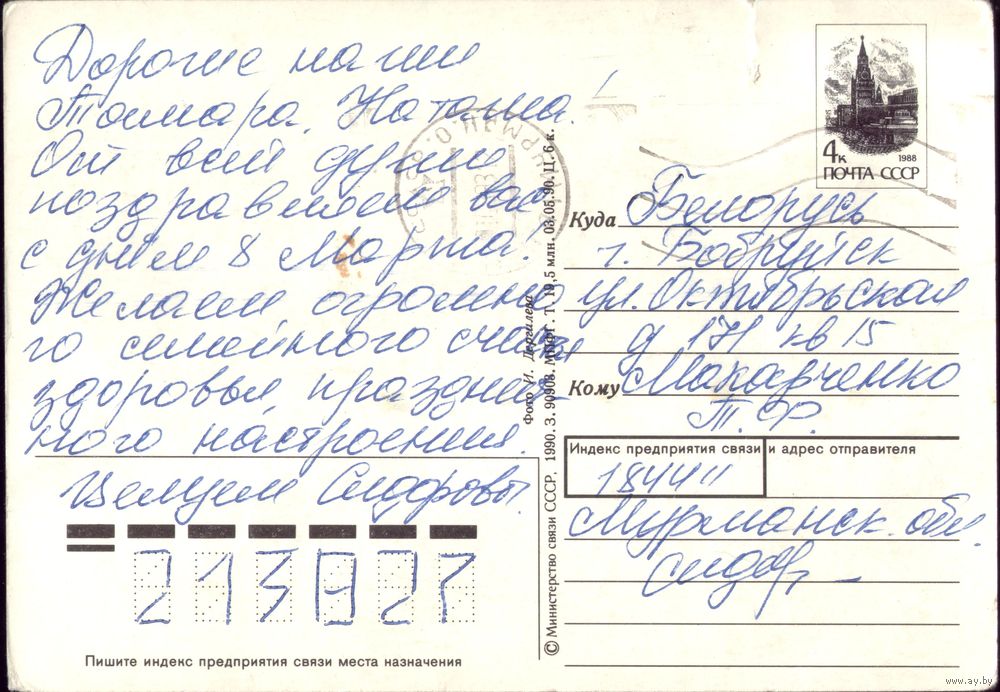 Дорогие наши
Томара, Наташа!
От всей души
поздравляем вас
с днём 8 Марта!
Желаем огромно
го семейного счастья
здоровья, празднич
ного настроения.
Целуем Сидоровы.
213827
Пишите индекс предприятия связи места назначения
Фото И. Дергилева
© Министерство связи СССР, 1990. З. 90908. МПФГ. Т. 19,5 млн. 03.05.90. Ц. 6 к.
4к
1988
ПОЧТА СССР
Куда Белорусь
г. Бобруйск
ул. Октябрьская
д 171 кв 15
Кому Макарченко
Т. Ф.
Индекс предприятия связи и адрес отправителя
184411
Мурманск. обл.
Сидор
www.ay.by